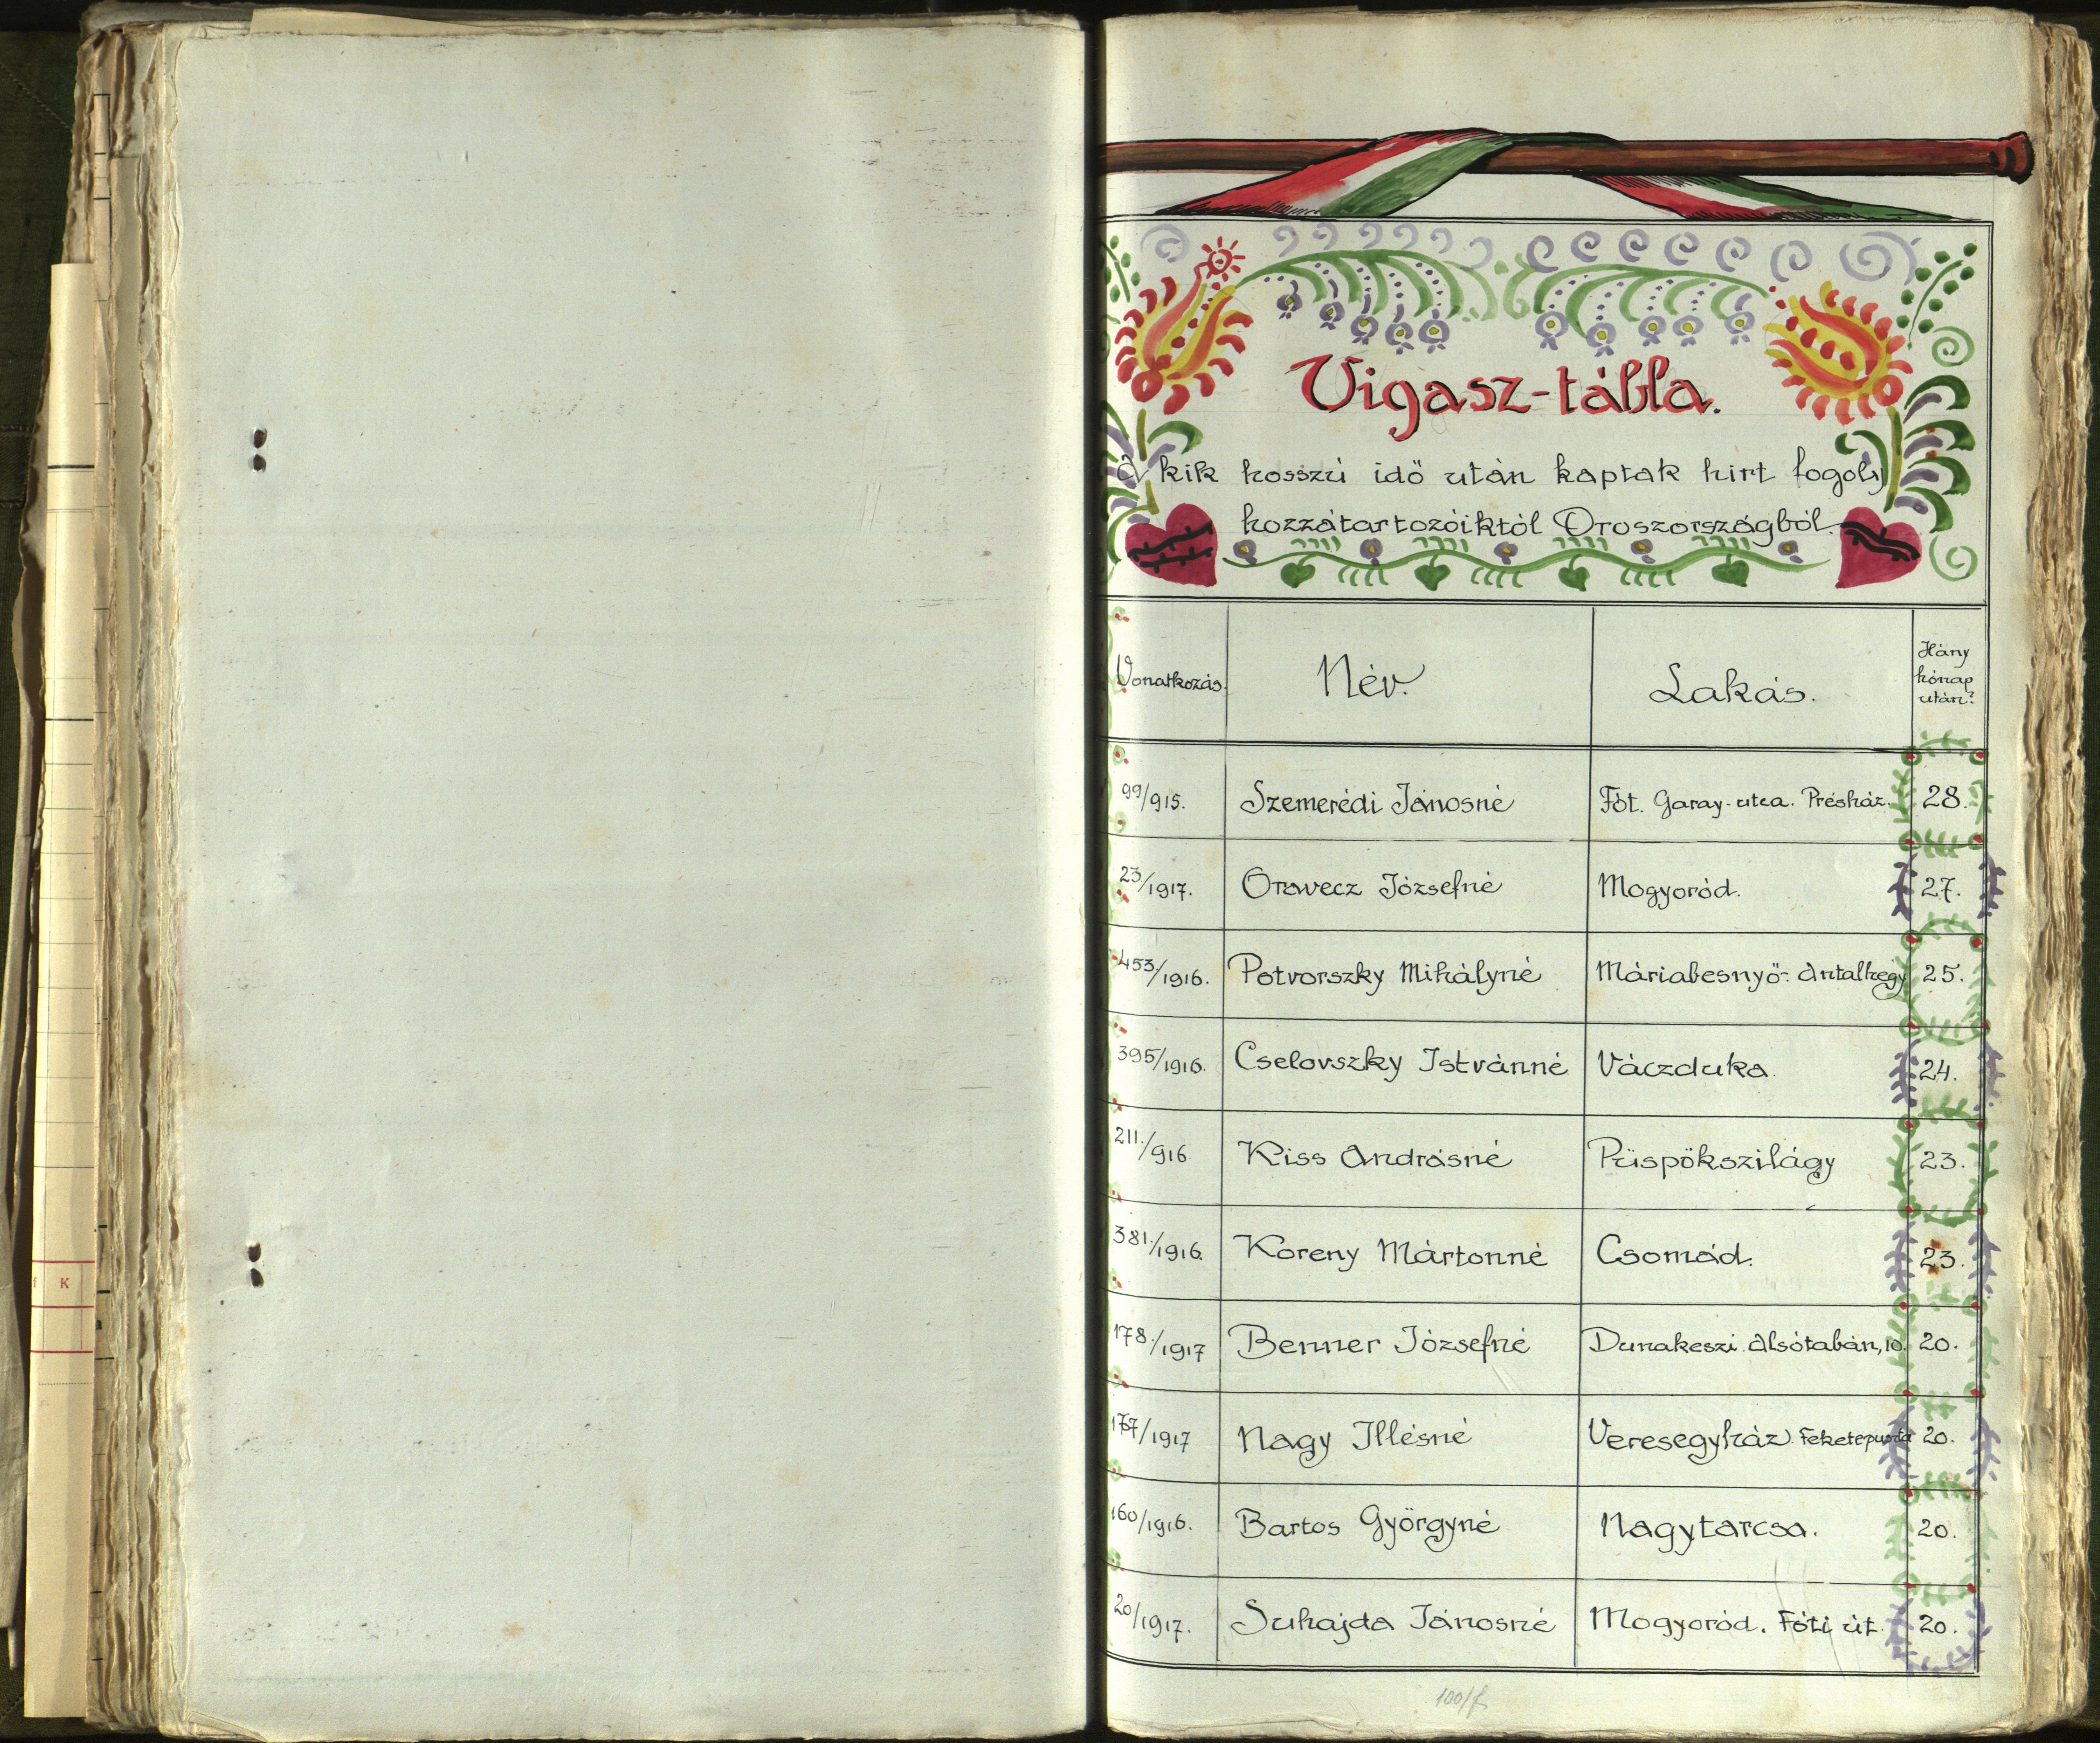 K
Vigasz-tábla.
A kik hosszú idő után kaptak hirt fogoly
hozzátartozóiktól Oroszországból.
Vonatkozás. Név. Lakás. Hány hónap után?
99/915. Szemerédi Jánosné Fót. Garay-utca. Présház. 28.
23/1917. Oravecz Józsefné Mogyoród. 27.
453/1916. Potvorszky Mihályné Máriabesnyő-Antalhegy 25.
395/1916. Cselovszky Istvánné Váczduka. 24.
211./916 Kiss Andrásné Püspökszilágy 23.
381./1916. Koreny Mártonné Csomád. 23.
178./1917 Benner Józsefné Dunakeszi Alsótabán, 10. 20.
177/1917 Nagy Illésné Veresegyház. Feketepuszta 20.
160/1916. Bartos Györgyné Nagytarcsa. 20.
20/1917. Suhajda Jánosné Mogyoród. Fóti út. 20.
100/f